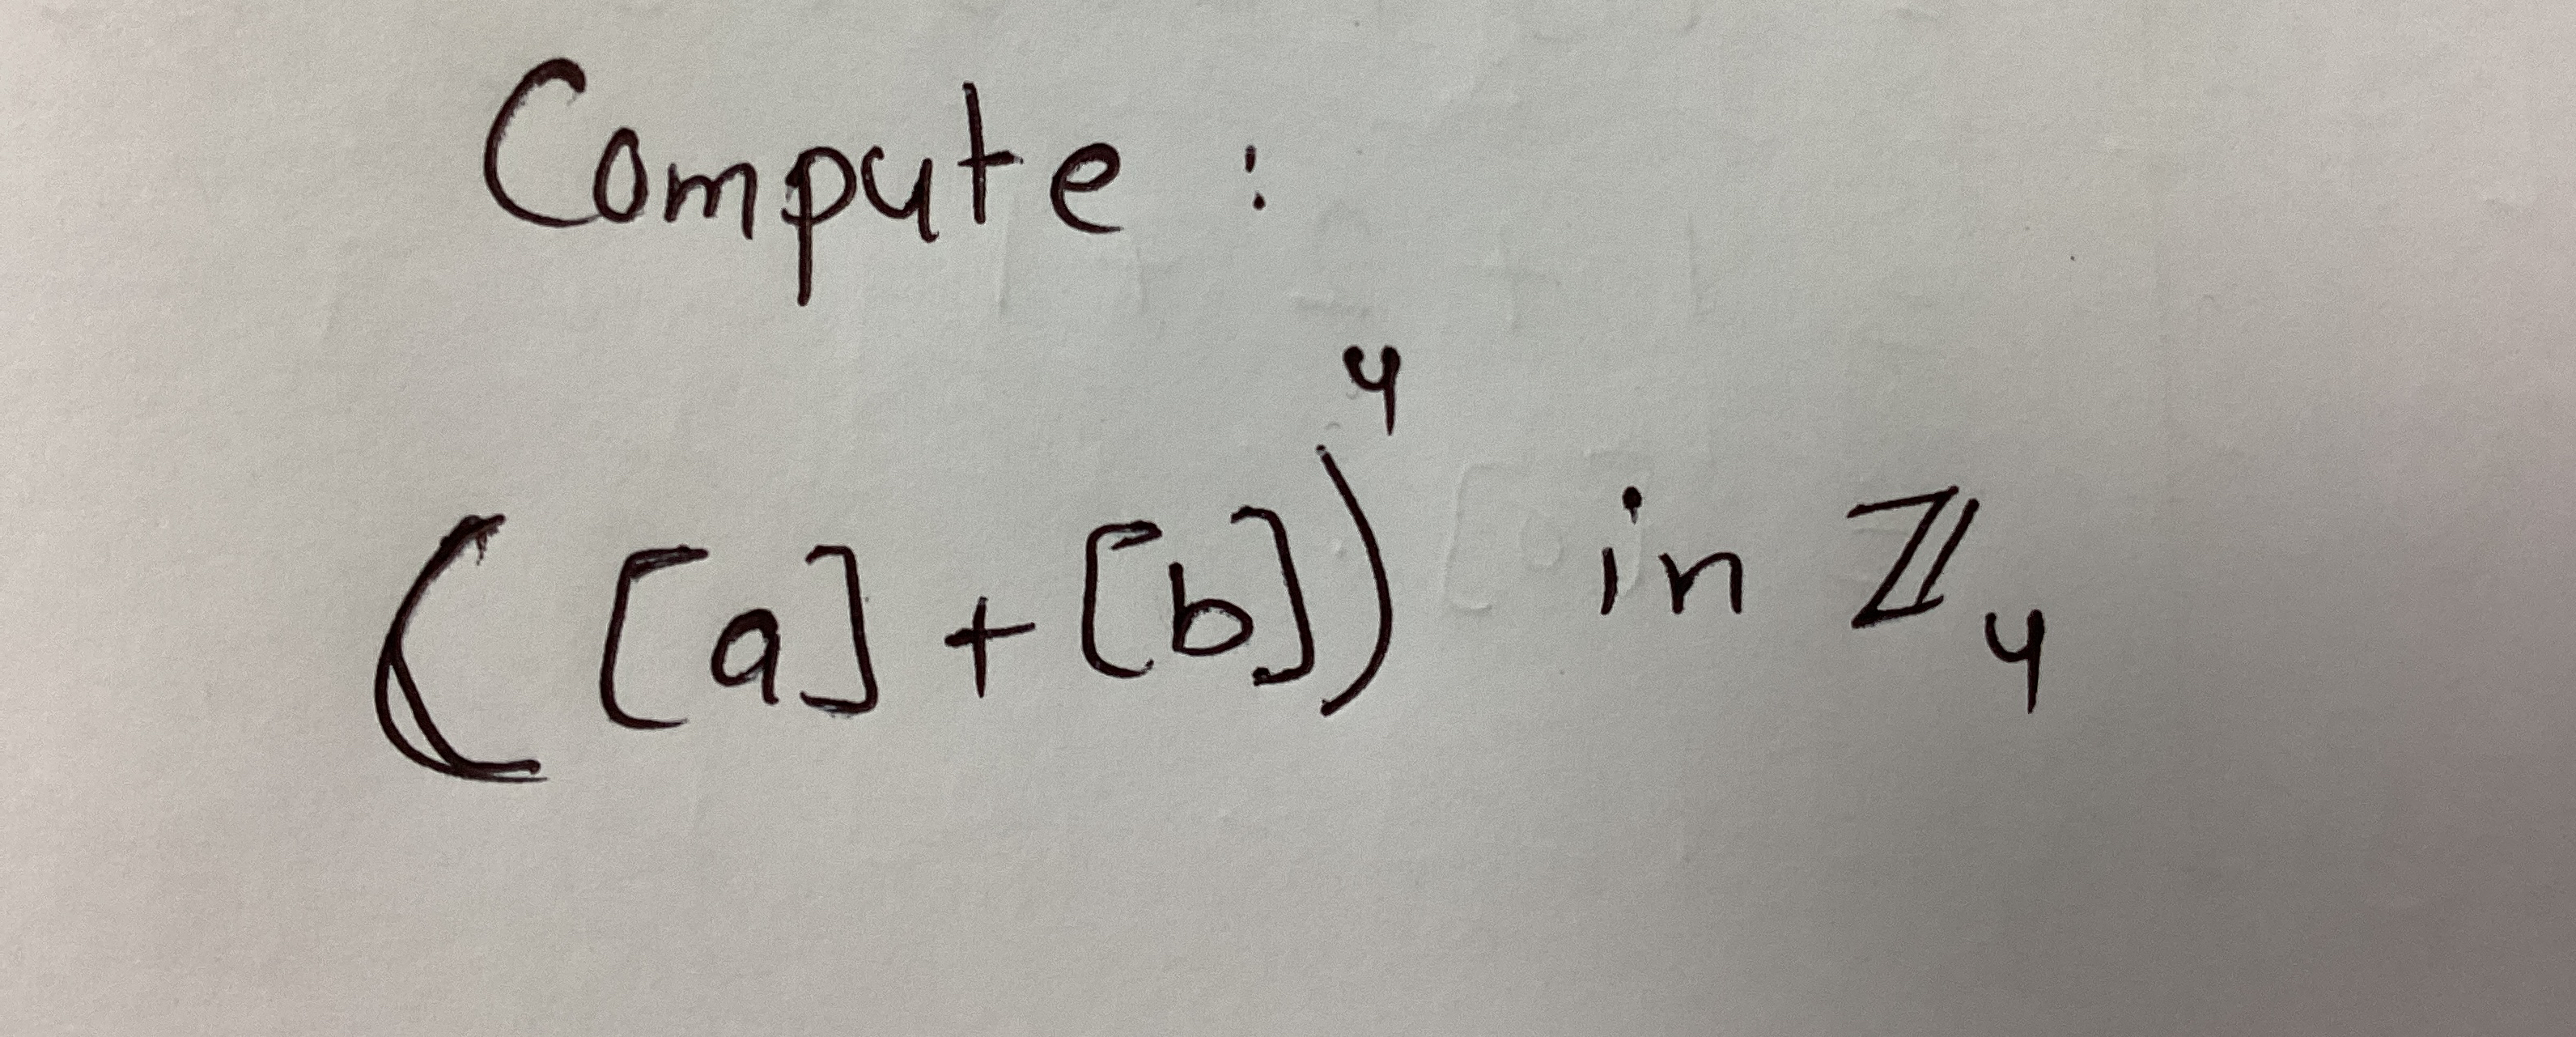 Compute :
([a] + [b])⁴ in ℤ₄